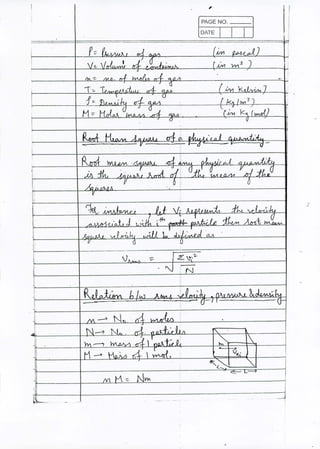 PAGE NO.
DATE
P = Pressure of gas (in pascal)
V = Volume of container (in m³)
n = no. of moles of gas
T = Temperature of gas (in Kelvin)
ρ = Density of gas (Kg/m³)
M = Molar mass of gas. (in Kg/mol)
Root Mean Square of a physical quantity
Root mean square of any physical quantity
is the square root of the mean of the
squares.
For instance, let Vi represents the velocity
associated with ith particle then root mean
square velocity will be defined as
Vrms = √ Σ vi² / N
Relation b/w rms velocity, pressure & density
n → No. of moles
N → No. of particles
m → mass of 1 particle
M → Mass of 1 mol.
n M = Nm